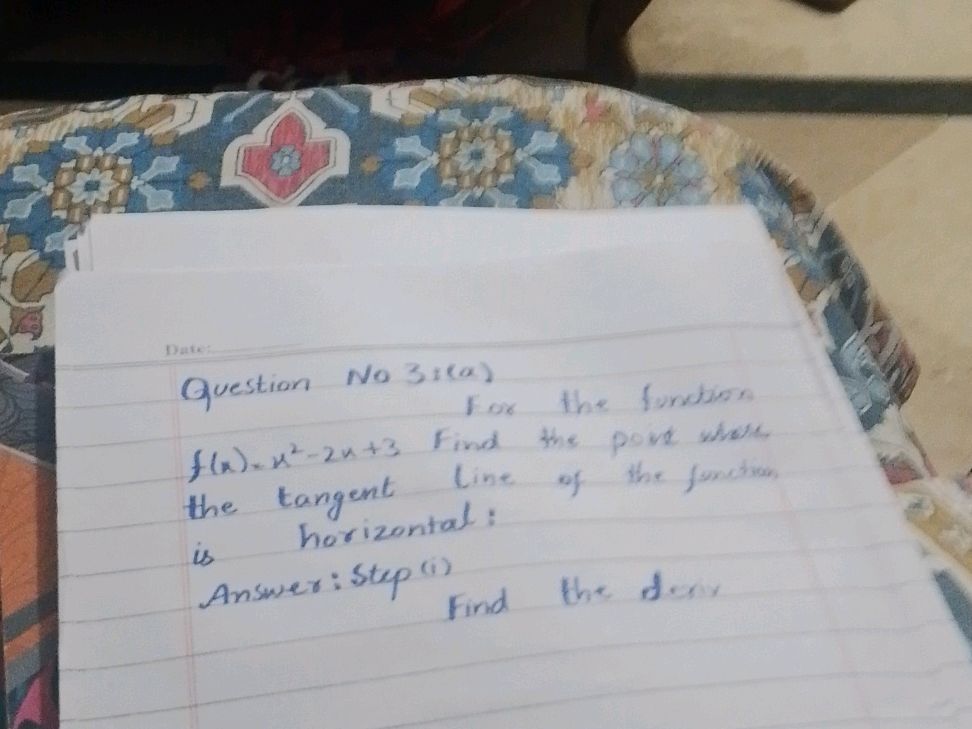 Date:
Question No 3:(a)
For the function
f(x) = x² - 2x + 3 Find the point where
the tangent line of the function
is horizontal:
Answer: Step (i)
Find the deriv